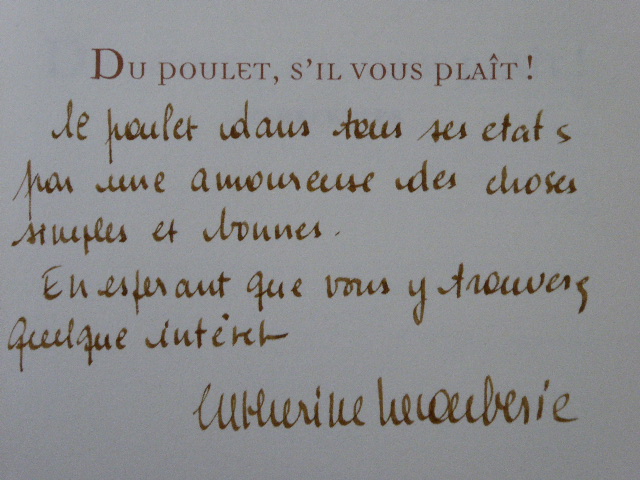 DU POULET, S'IL VOUS PLAÎT !
le poulet dans tous ses etats
par une amoureuse des choses
simples et bonnes.
En esperant que vous y trouverez
quelque intérêt
Catherine